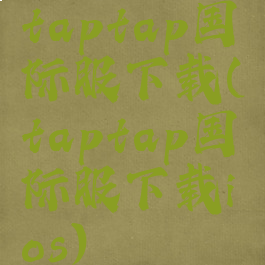 taptap国
际服下载(
taptap国
际服下载i
os)